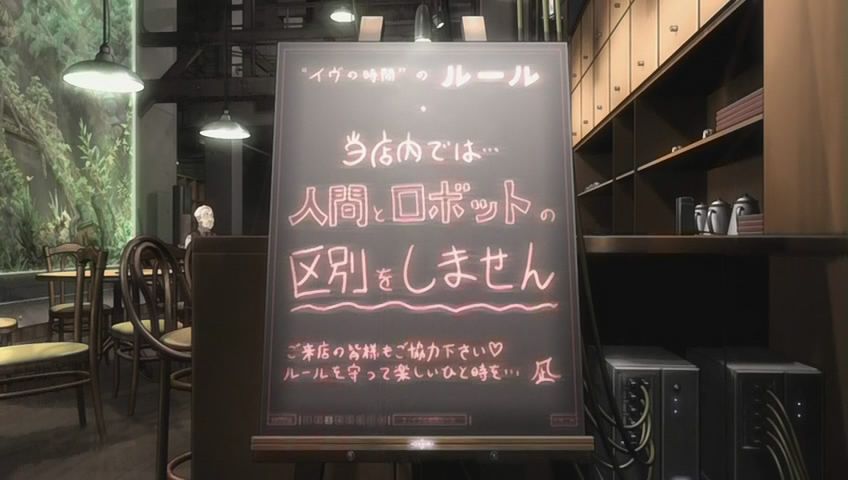 "イヴの時間"の ルール
当店内では…
人間とロボットの
区別をしません
ご来店の皆様もご協力下さい♡
ルールを守って楽しいひと時を… 凪